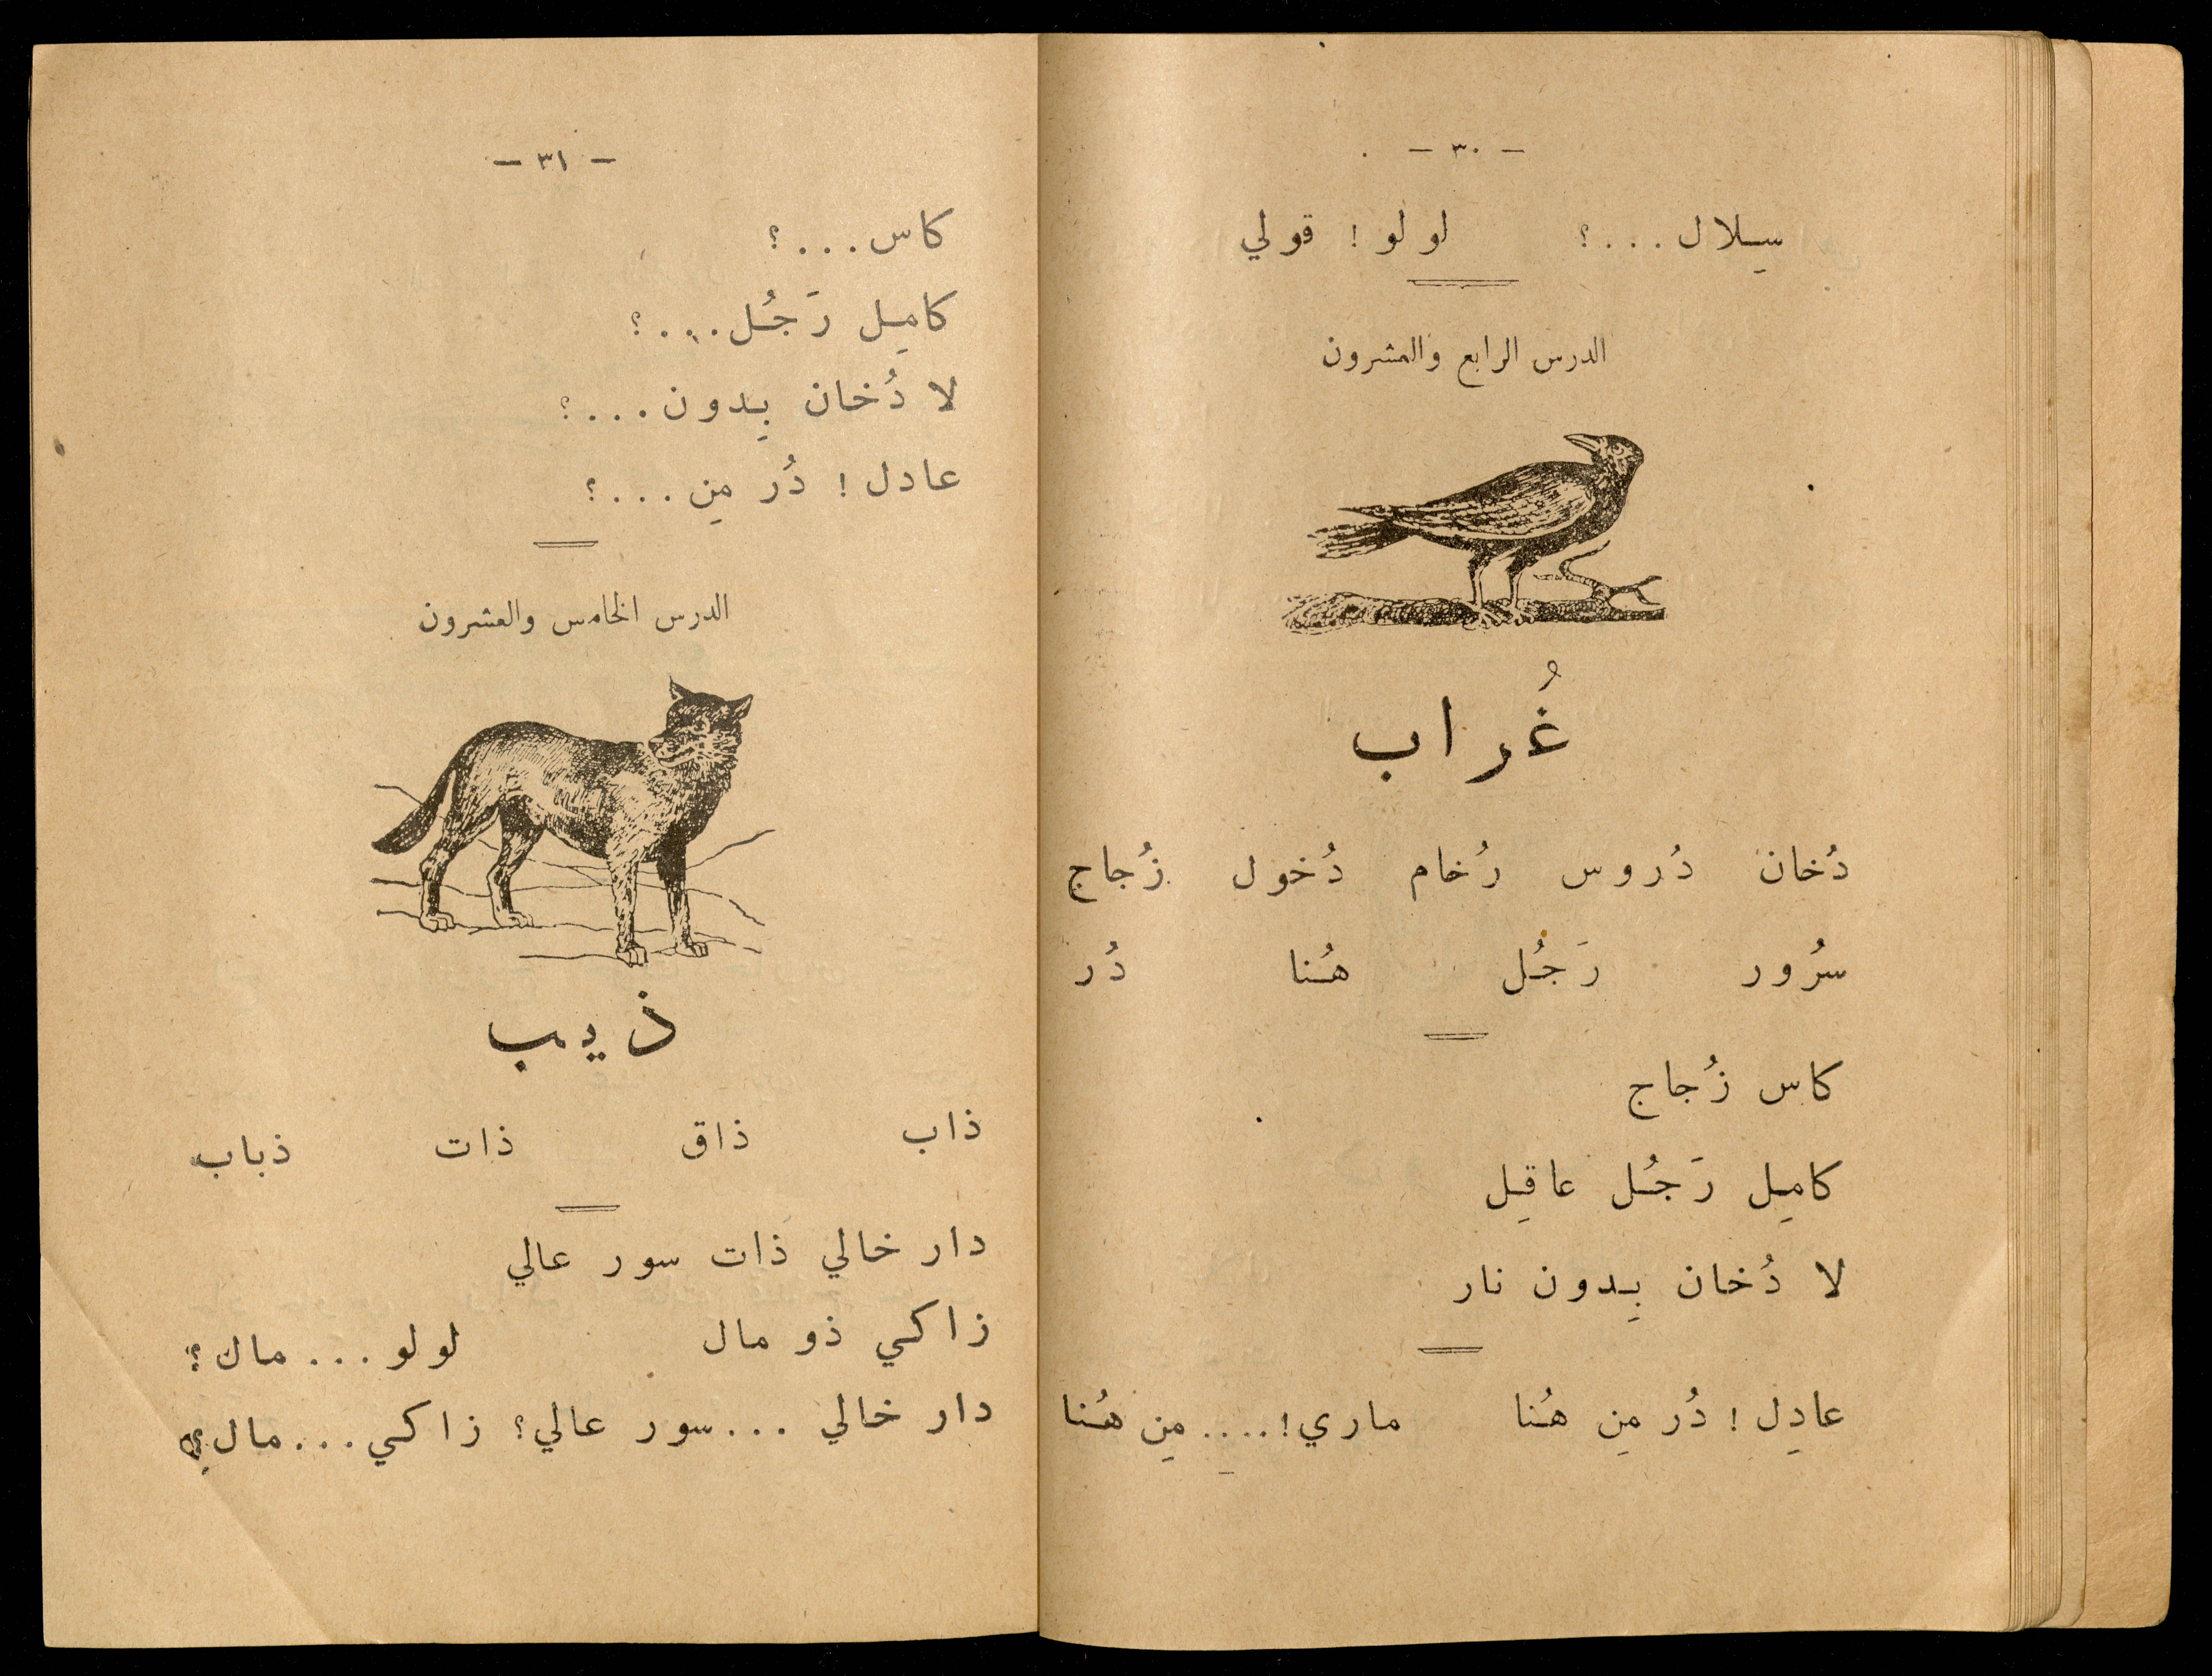 - ٣٠ -
سِلال ...؟ لولو! قولي
الدرس الرابع والعشرون
غُراب
دُخان دُروس رُخام دُخول زُجاج
سرُور رَجُل هُنا دُر
كاس زُجاج
كامِل رَجُل عاقِل
لا دُخان بِدون نار
عادِل! دُر مِن هُنا ماري! .... مِن هُنا
- ٣١ -
كاس ...؟
كامِل رَجُل ...؟
لا دُخان بِدون ...؟
عادل! دُر مِن ...؟
الدرس الخامس والعشرون
ذيب
ذاب ذاق ذات ذباب
دار خالي ذات سور عالي
زاكي ذو مال لولو ... مال؟
دار خالي ... سور عالي؟ زاكي ... مال؟